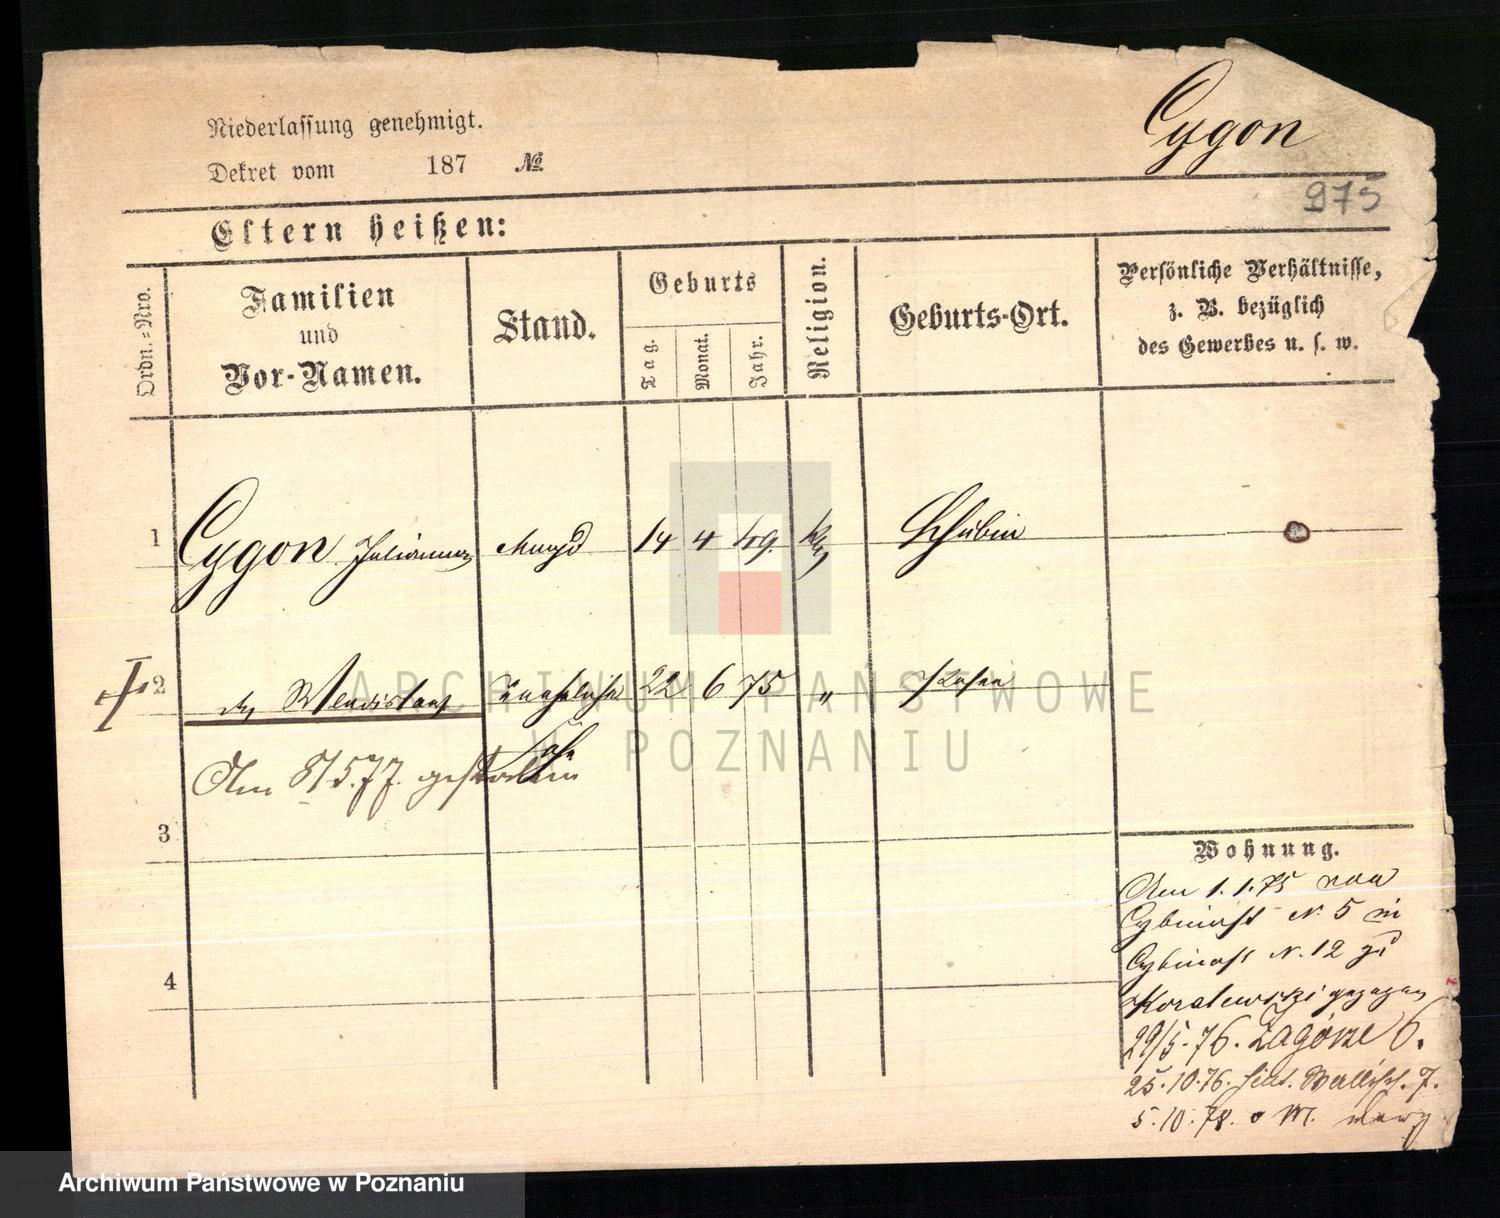 Niederlassung genehmigt.
Cygon
Dekret vom 187 №
975
Eltern heißen:
Ordn.=Nro.
Familien
und
Vor-Namen.
Stand.
Geburts
Tag.
Monat.
Jahr.
Religion.
Geburts-Ort.
Persönliche Verhältnisse,
z. B. bezüglich
des Gewerbes u. s. w.
1 Cygon Julianna Magd 14 4 49. kth Schubin
2 Wladislaus unehelicher 22 6 75 " Posen
Sohn
Am 8/5.77. gestorben
3
4
Wohnung.
Am 1.1.75 von
Cybinast N. 5 in
Cybinast N. 12 zu
Koralewski gezogen
29/5.76. Zagórze 6.
25.10.76. Wallisch. 7.
5.10.78.
ARCHIWUM PAŃSTWOWE
W POZNANIU
Archiwum Państwowe w Poznaniu